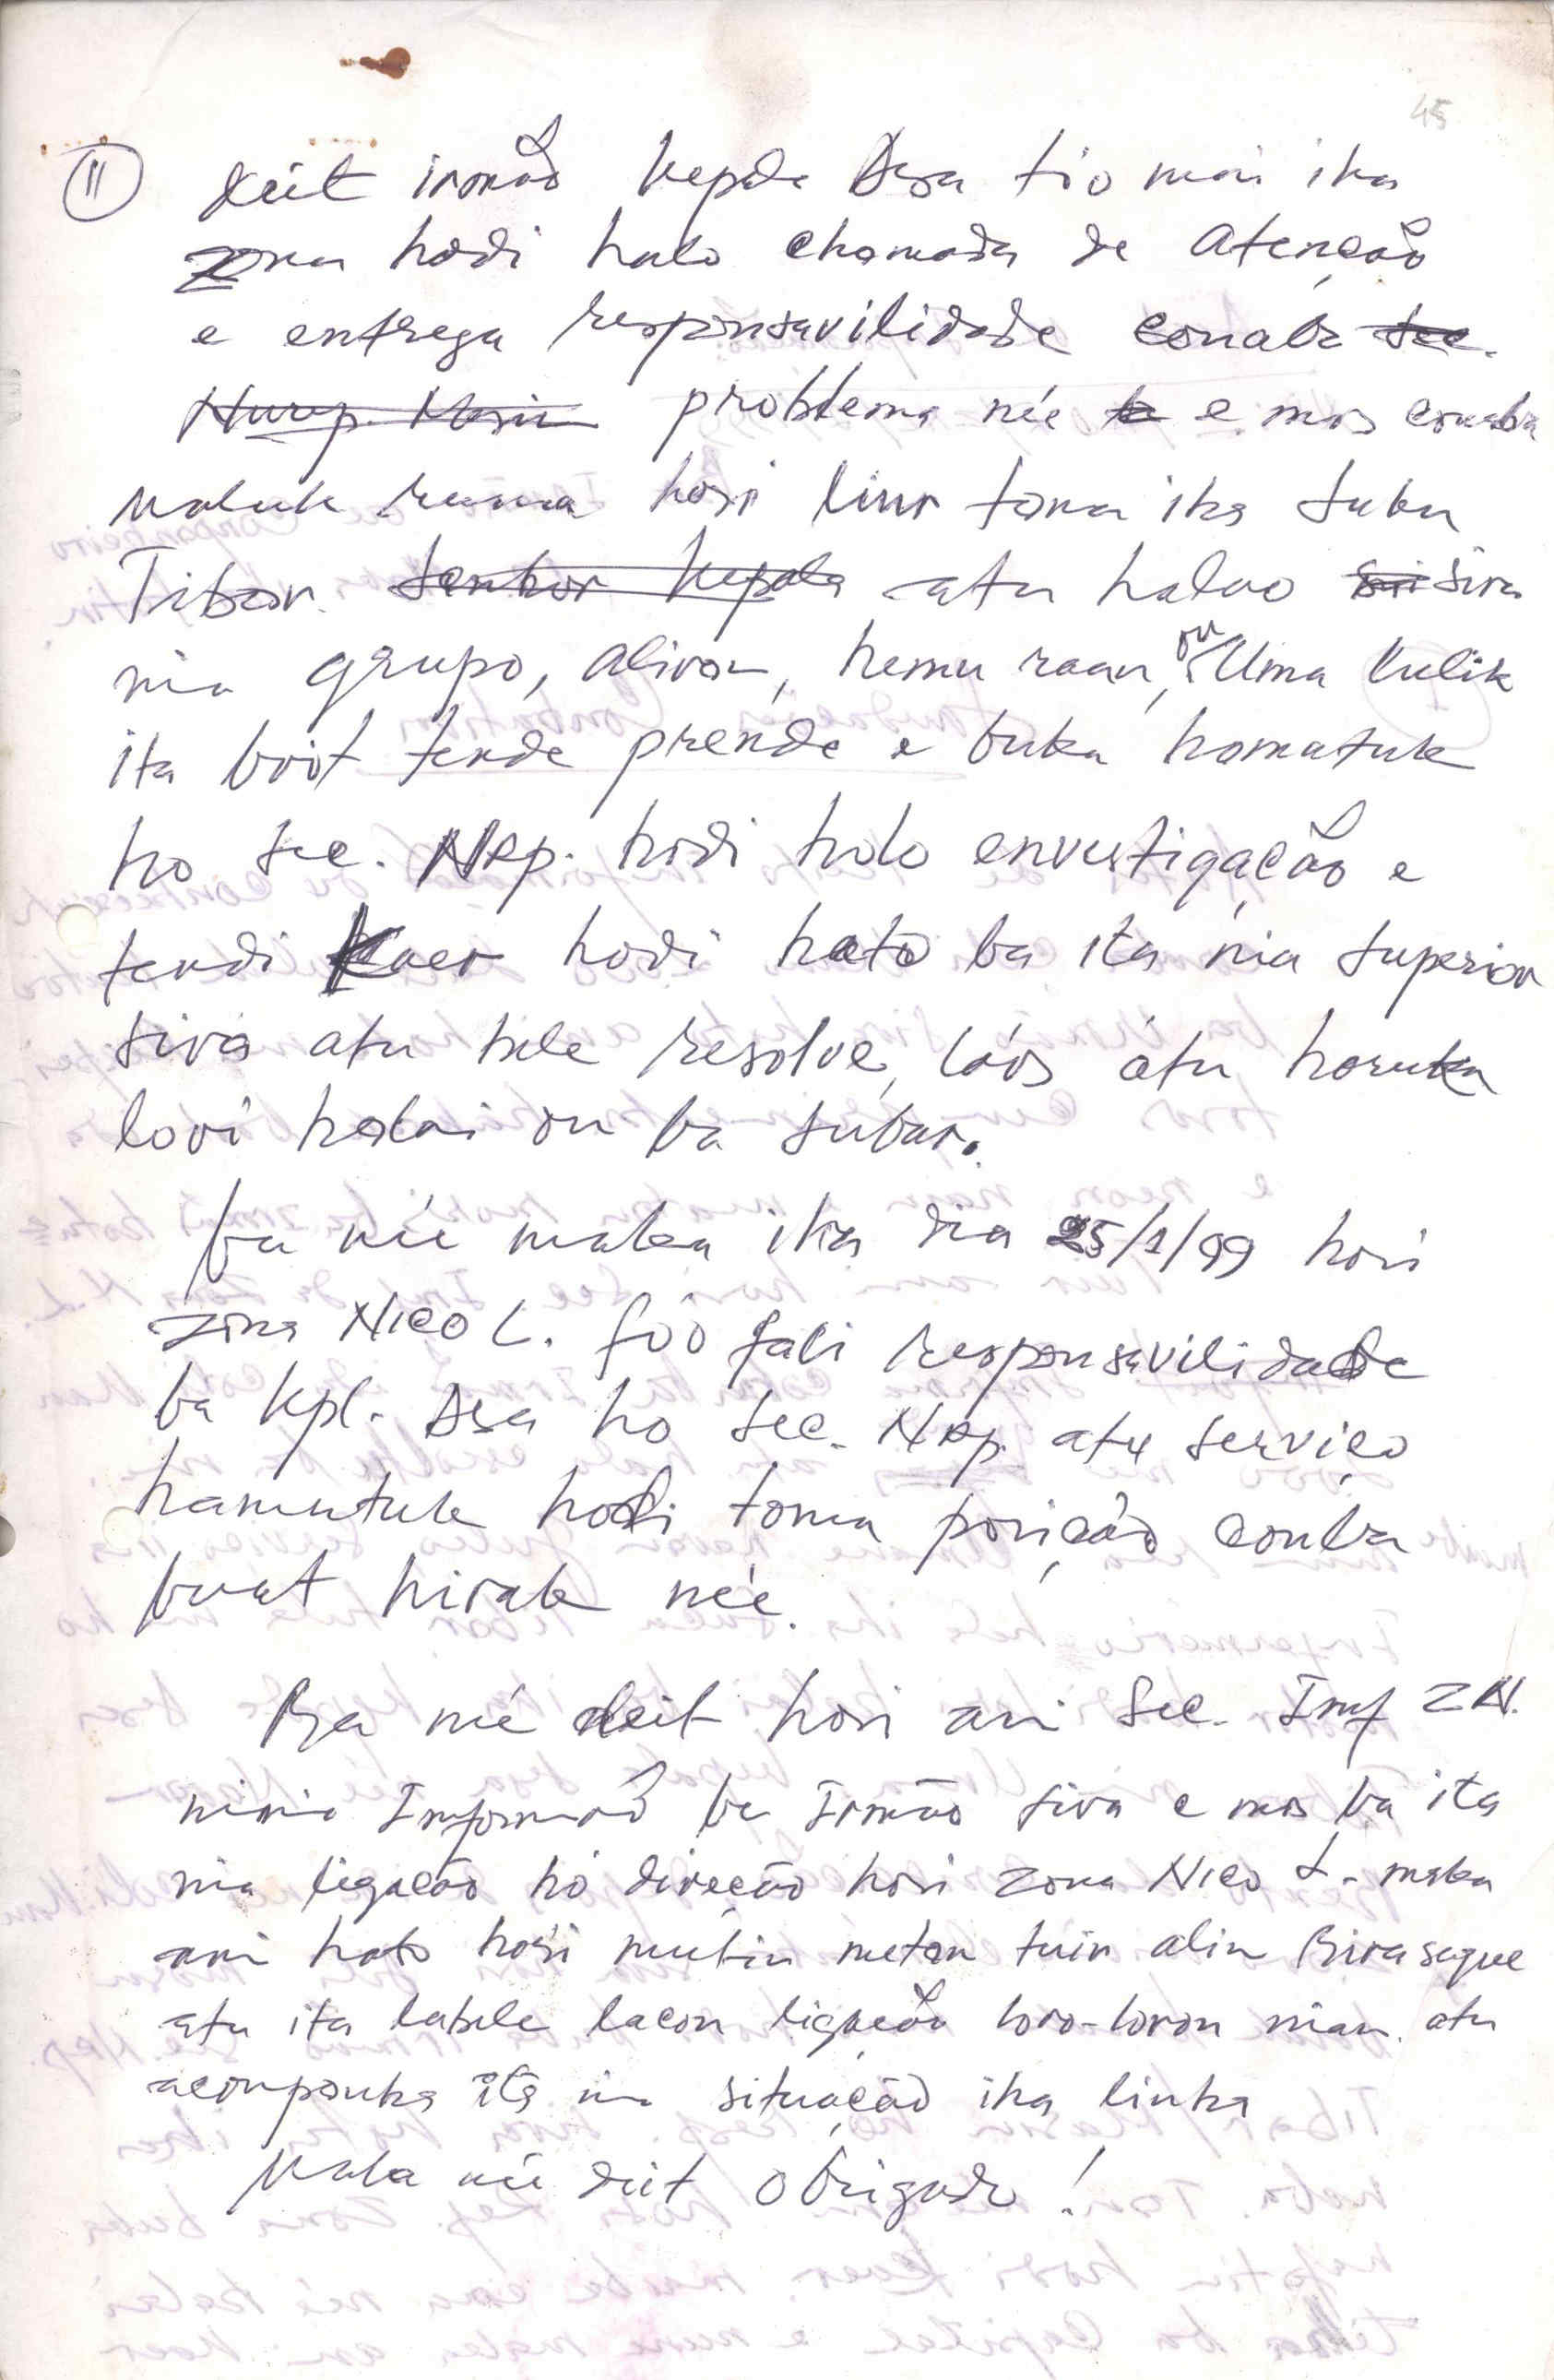 45
11 deit irmão kepala Asa tio mai iha
zona hodi halo chamada de Atenção
e entrega responsavilidade conaba Sec.
Nurep. Masin problema née e mos conaba
maluk ruma hosi liur tama iha suku
Tibar. Senhor kepala atu halao sira
nia grupo, alivan, hemu raan, ou Uma kulik
ita boot tende prende e buka hamutuk
ho Sec. Nrp. hodi halo envestigação e
tendi kaer hodi hato ba ita nia superior
sira atu bele resolve, láos atu haruka
lori halai ou ba subar.
ba née maka iha dia 25/1/99 hosi
zona Nico L. foo fali responsavilidade
ba kpl. Asa ho Sec. Nrp. atu serviço
hamutuk hodi toma posição conba
buat hirak née.
Ba né deit hosi ami Sec. Inf Z N.
ninia Informad ba Irmão sira e mos ba ita
nia ligação hó direção hosi zona Nico L. maka
ami hato hosi mutin metan tuir alin Birasague
atu ita labele lacon ligação loro-loron nian. atu
acompanha ita nia situação iha linha
Maka née deit Obrigado!